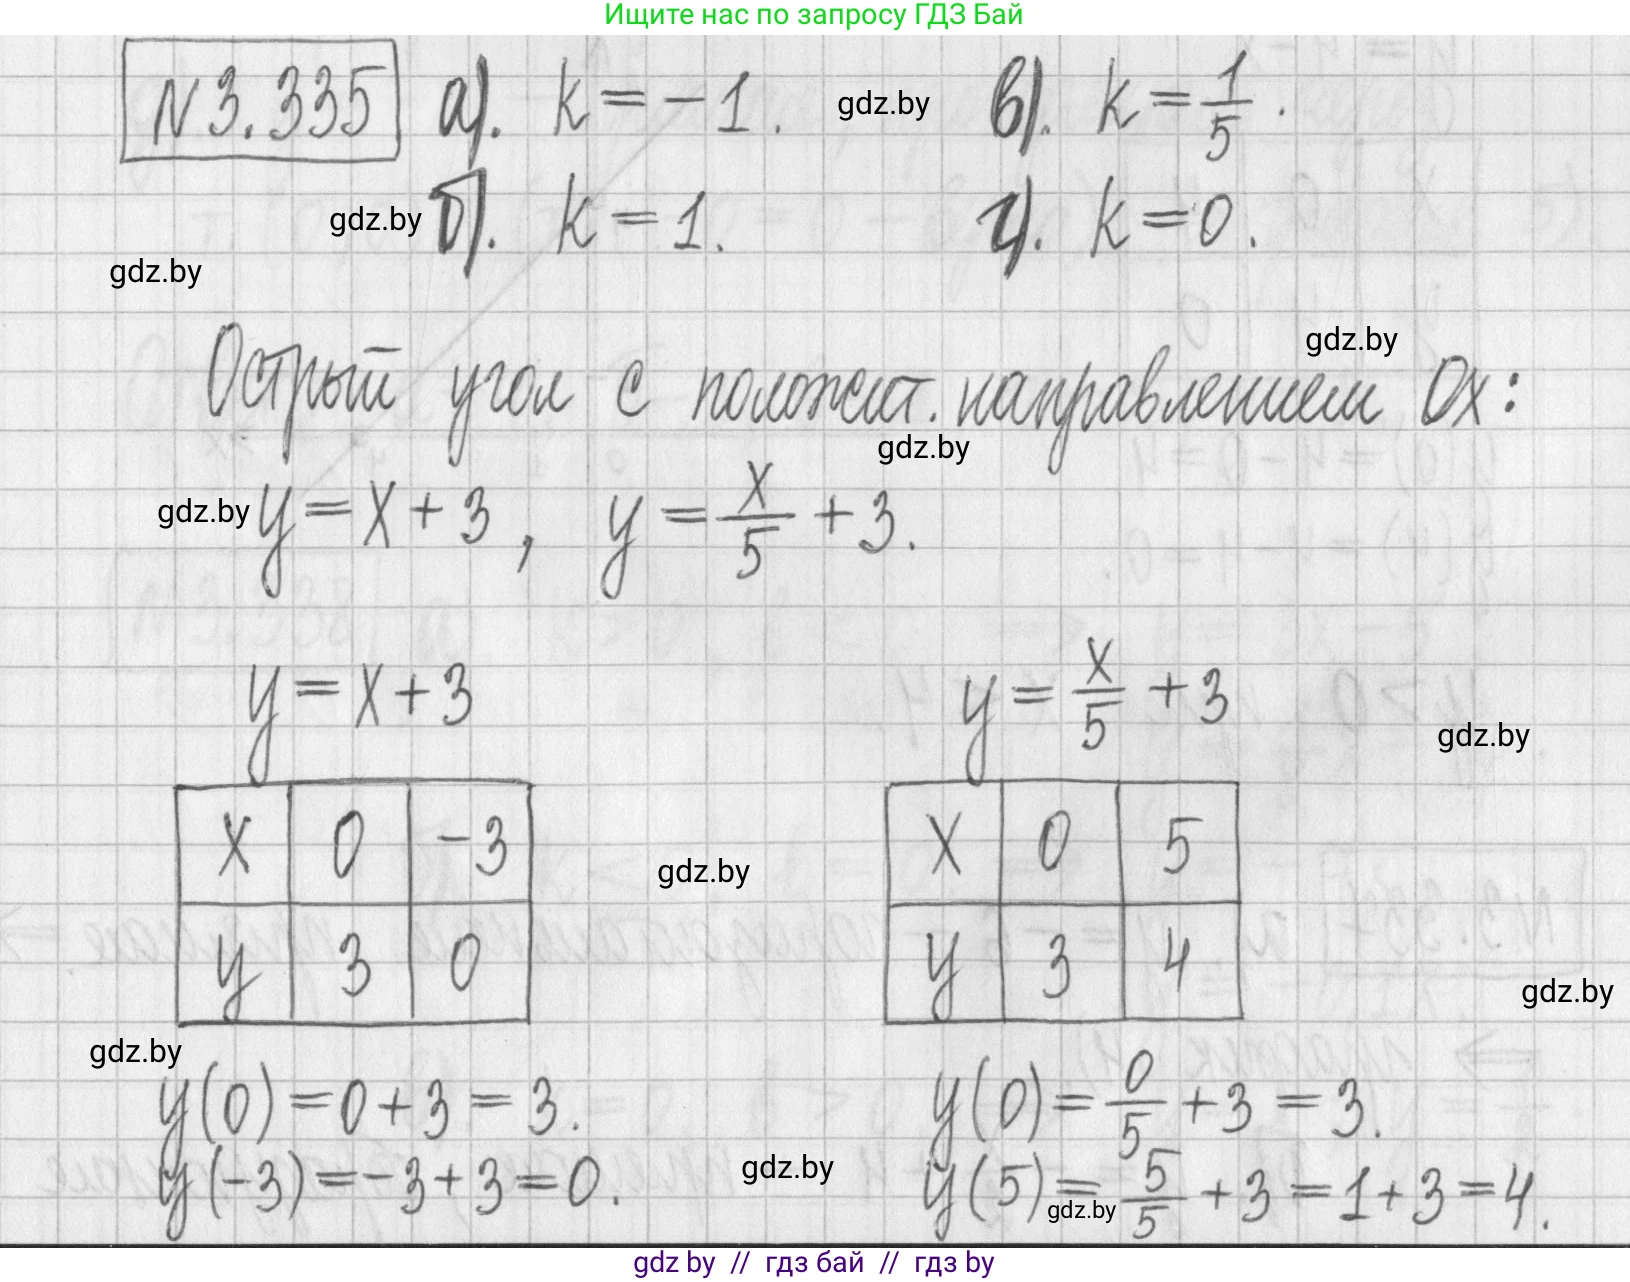 Ищите нас по запросу ГДЗ Бай
N 3.335 а). k = -1. gdz.by в). k = 1/5.
gdz.by б). k = 1. г). k = 0.
gdz.by
gdz.by
Острый угол с положит. направлением Ox:
gdz.by
gdz.by y = x + 3, y = x/5 + 3.
y = x + 3 y = x/5 + 3
gdz.by
x 0 -3 gdz.by x 0 5
y 3 0 y 3 4
gdz.by
gdz.by
y(0) = 0 + 3 = 3. y(0) = 0/5 + 3 = 3.
y(-3) = -3 + 3 = 0. gdz.by y(5) = 5/5 + 3 = 1 + 3 = 4.
gdz.by
gdz by // гдз бай // гдз by